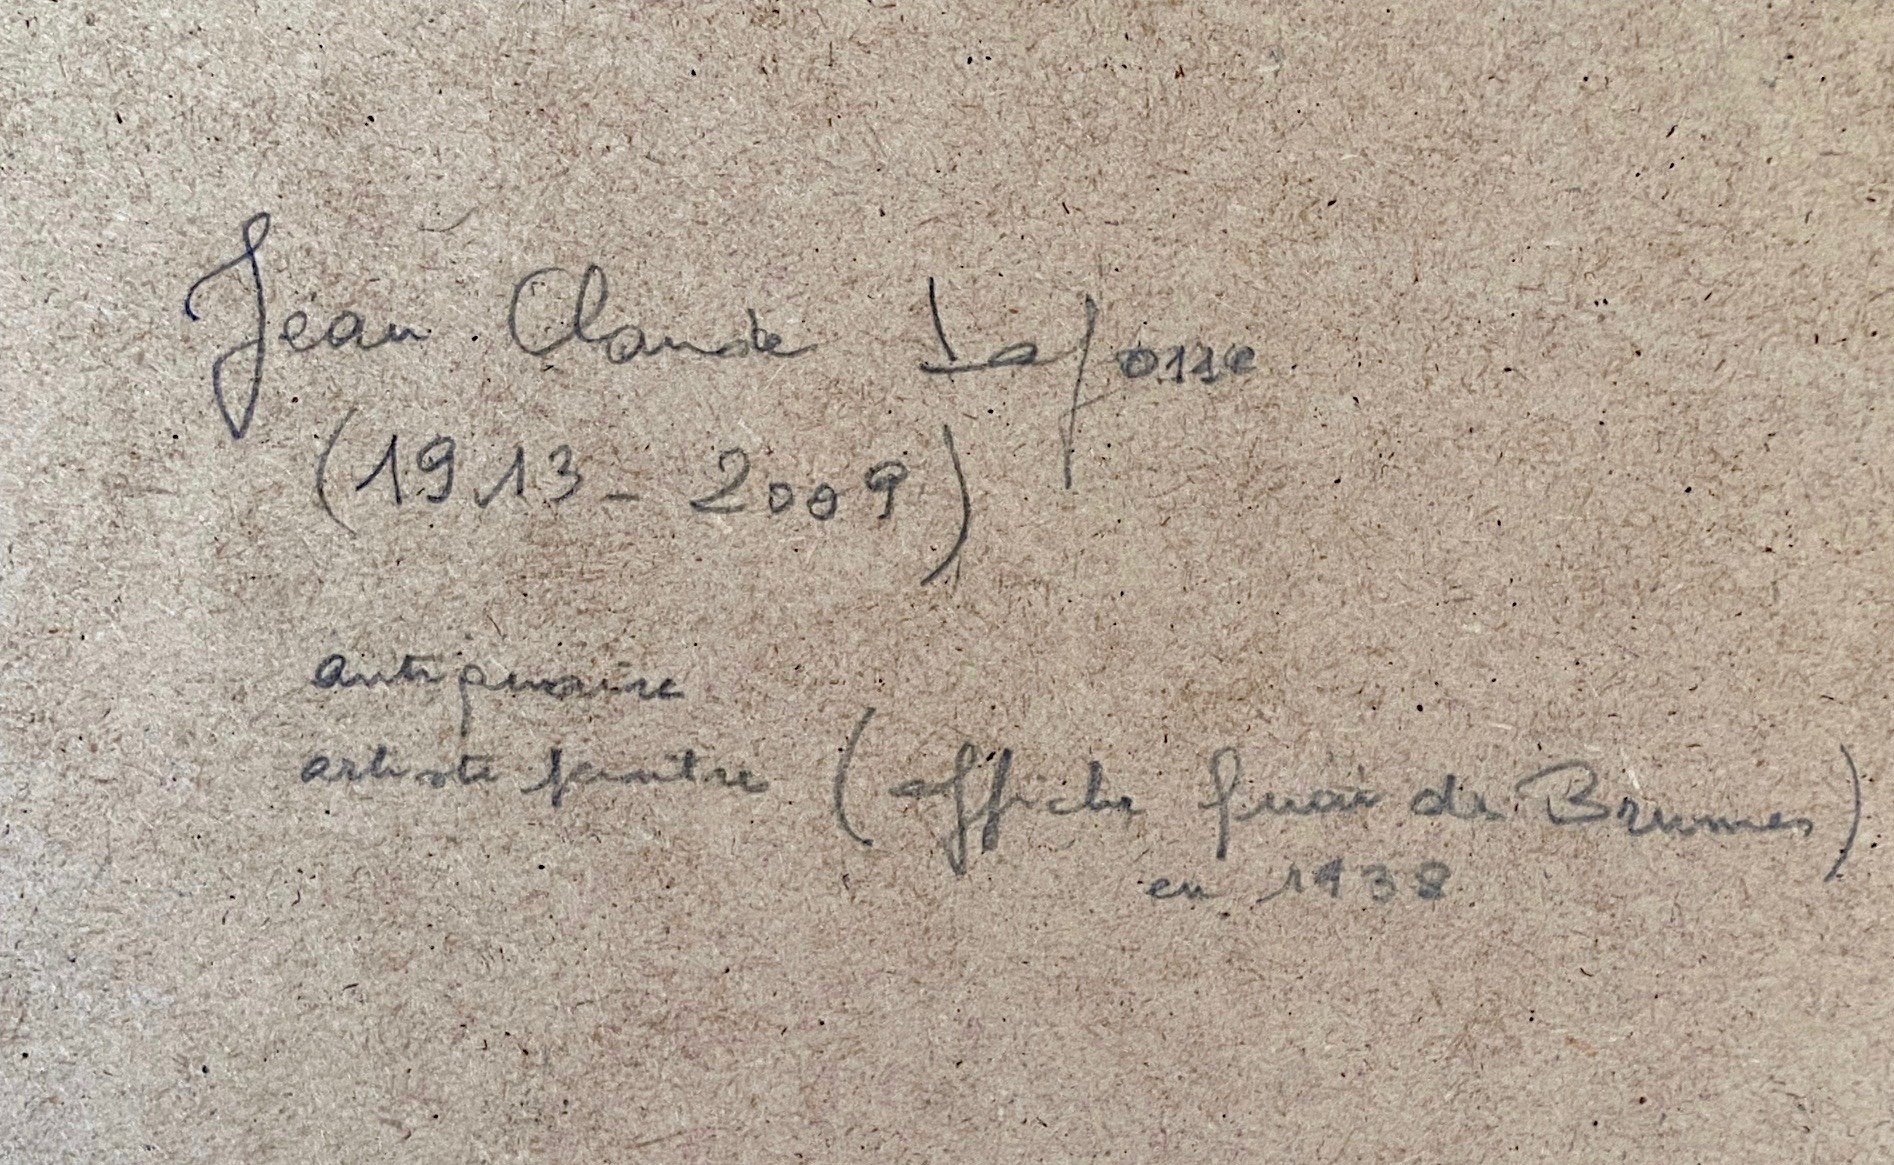 Jean Claude Lafosse
(1913 - 2009)
antiquaire
artiste peintre (affiche quai des Brumes)
en 1938